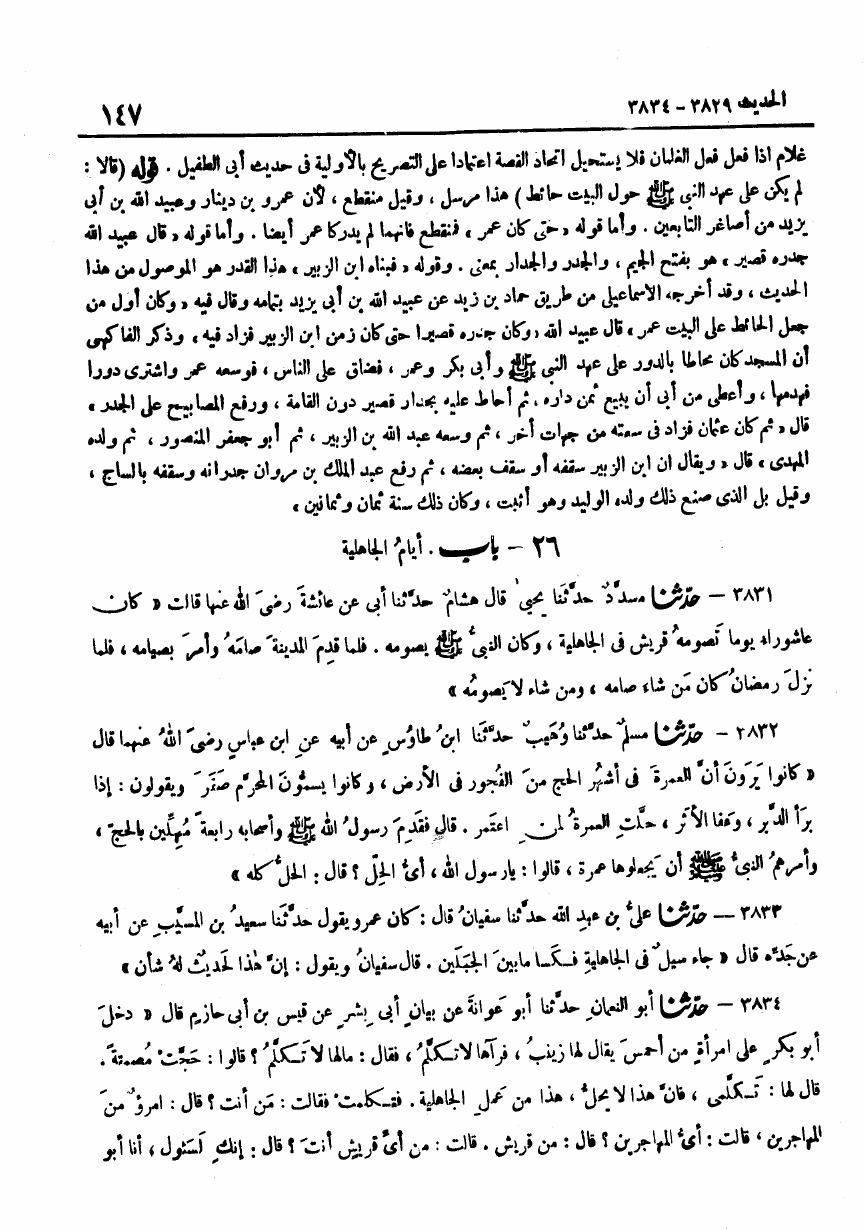 الحديث ٣٨٢٩ - ٣٨٣٤
١٤٧
غلام اذا فعل فعل الغلمان فلا يستحيل اتحاد القصة اعتمادا على التصريح بالأولية فى حديث أبى الطفيل . قوله (قالا :
لم يكن على عهد النبى ﷺ حول البيت حائط) هذا مرسل ، وقيل منقطع ، لأن عمرو بن دينار وعبيد الله بن أبى
يزيد من أصاغر التابعين . وأما قوله « حتى كان عمر » فمنقطع فانهما لم يدركا عمر أيضا . وأما قوله « قال عبيد الله
جدره قصير » هو بفتح الجيم ، والجدر والجدار بمعنى . وقوله « فبناه ابن الزبير » هذا القدر هو الموصول من هذا
الحديث ، وقد أخرجه الاسماعيلى من طريق حماد بن زيد عن عبيد الله بن أبى يزيد بتمامه وقال فيه « وكان أول من
جعل الحائط على البيت عمر » قال عبيد الله « وكان جدره قصيرا حتى كان زمن ابن الزبير فزاد فيه » وذكر الفاكهى
أن المسجد كان محاطا بالدور على عهد النبى ﷺ وأبى بكر وعمر ، فضاق على الناس ، فوسعه عمر واشترى دورا
فهدمها ، وأعطى من أبى أن يبيع ثمن داره ، ثم أحاط عليه بجدار قصير دون القامة ، ورفع المصابيح على الجدر »
قال « ثم كان عثمان فزاد فى سعته من جهات أخر ، ثم وسعه عبد الله بن الزبير ، ثم أبو جعفر المنصور ، ثم ولده
المهدى » قال « ويقال ان ابن الزبير سقفه أو سقف بعضه ، ثم رفع عبد الملك بن مروان جدرانه وسقفه بالساج ،
وقيل بل الذى صنع ذلك ولده الوليد وهو أثبت ، وكان ذلك سنة ثمان وثمانين »
٢٦ - باب . أيامُ الجاهلية
٣٨٣١ - حدّثنا مسدَّدٌ حدَّثَنا يحيىٰ قال هشامٌ حدَّثنا أبى عن عائشةَ رضىَ الله عنها قالت « كان
عاشوراء يوما تَصومهُ قريش فى الجاهلية ، وكان النبىُّ ﷺ يصومه . فلما قدِمَ المدينةَ صامَهُ وأمرَ بصيامه ، فلما
نزلَ رمضانُ كان مَن شاء صامه ، ومن شاء لا يَصومُه »
٣٨٣٢ - حدّثنا مسلمٌ حدَّثنا وُهَيبٌ حدَّثَنا ابنُ طاوُسٍ عن أبيه عنِ ابن عباسٍ رضىَ اللهُ عنهما قال
« كانوا يَرَونَ أنَّ العمرةَ فى أشهُرِ الحج منَ الفُجور فى الأرض ، وكانوا يسمُّونَ المحرَّم صَفَرَ ويقولون : إذا
برَأ الدَّبر ، وعفا الأثَر ، حلَّتِ العمرةُ لمنِ اعتمر . قال فقَدِمَ رسولُ الله ﷺ وأصحابه رابعةً مُهِلِّين بالحجّ ،
وأمرهمُ النبىُّ ﷺ أن يَجعلوها عمرة ، قالوا : يا رسول الله ، أىُّ الحِلّ ؟ قال : الحلُّ كله »
٣٨٣٣ - حدّثنا علىُّ بن عبدِ الله حدَّثنا سفيانُ قال : كان عمرو يقول حدَّثَنا سعيدُ بن المسيَّبِ عن أبيه
عن جَدِّه قال « جاء سيلٌ فى الجاهليةِ فكسا ما بينَ الجبَلَين . قال سفيانُ ويقول : إنَّ هٰذا لَحديثٌ لهُ شأن »
٣٨٣٤ - حدّثنا أبو النعمانِ حدَّثنا أبو عَوانةَ عن بيانٍ أبى بِشرٍ عن قيسِ بن أبى حازمٍ قال « دخلَ
أبو بكرٍ على امرأةٍ من أحمسَ يقال لها زينبُ ، فرآها لا تكلَّمُ ، فقال : مالها لا تَكلَّمُ ؟ قالوا : حَجَّتْ مُصمتةً .
قال لها : تَكلَّمى ، فانَّ هذا لا يحلُّ ، هذا من عَملِ الجاهلية . فتكلمتْ فقالت : مَن أنت ؟ قال : امرؤٌ منَ
المهاجرين ، قالت : أىُّ المهاجرين ؟ قال : من قريش . قالت : من أىِّ قريشٍ أنتَ ؟ قال : إنكِ لَسَئول ، أنا أبو